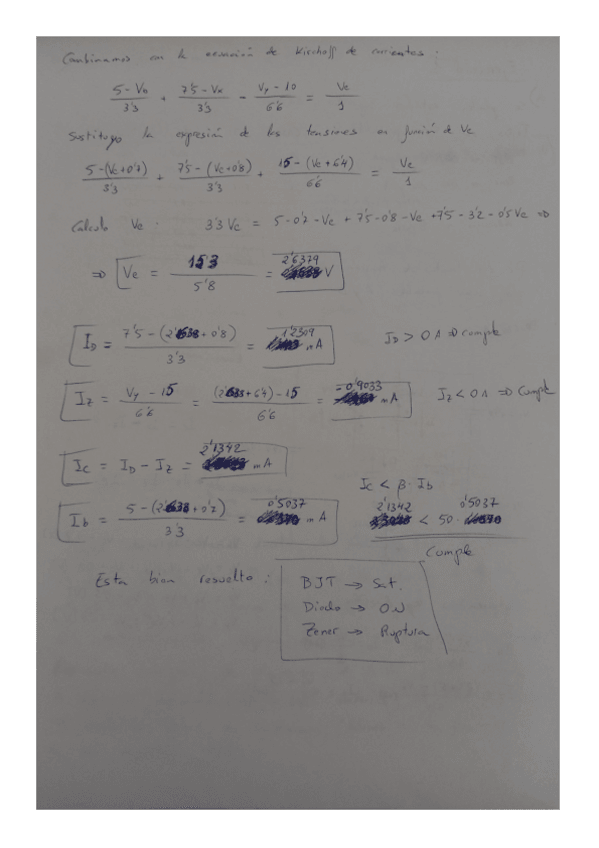 Combinamos con la ecuación de Kirchoff de corrientes:
(5 - Vb)/3'3 + (7'5 - Vx)/3'3 - (Vy - 10)/6'6 = Ve/1
Sustituyo la expresión de las tensiones en función de Ve
(5 - (Ve + 0'7))/3'3 + (7'5 - (Ve + 0'8))/3'3 + (15 - (Ve + 6'4))/6'6 = Ve/1
Calculo Ve 3'3 Ve = 5 - 0'7 - Ve + 7'5 - 0'8 - Ve + 7'5 - 3'2 - 0'5 Ve ⇒
⇒ Ve = 15'3/5'8 = 2'6379 V
ID = (7'5 - (2' + 0'8))/3'3 = 1'2309 mA ID > 0 A ⇒ cumple
Iz = (Vy - 15)/6'6 = ((2' + 6'4) - 15)/6'6 = -0'9033 mA Iz < 0 A ⇒ Cumple
Ic = ID - Iz = 2'1342 mA
Ic < β · Ib
Ib = (5 - (2' + 0'7))/3'3 = 0'5037 mA 2'1342 < 50 · 0'5037
Cumple
Esta bien resuelto: BJT → Sat.
Diodo → ON
Zener → Ruptura